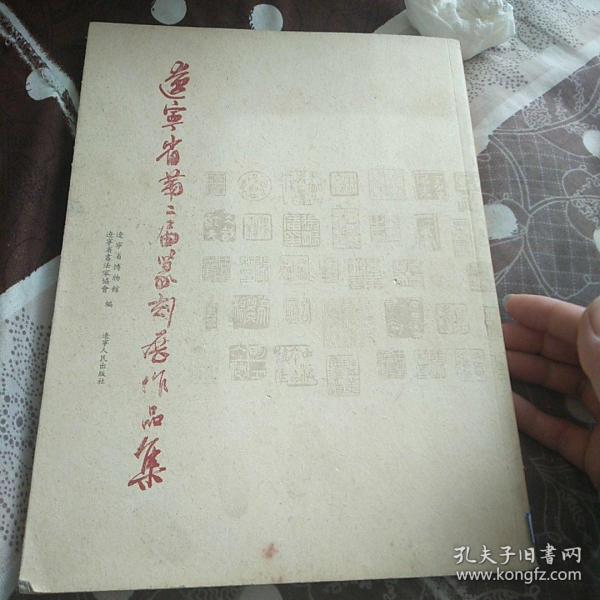 遼寧省第二屆篆刻展作品集
遼寧省博物館
遼寧省書法家協會 編
遼寧人民出版社
孔夫子旧書网
www.kongfz.com